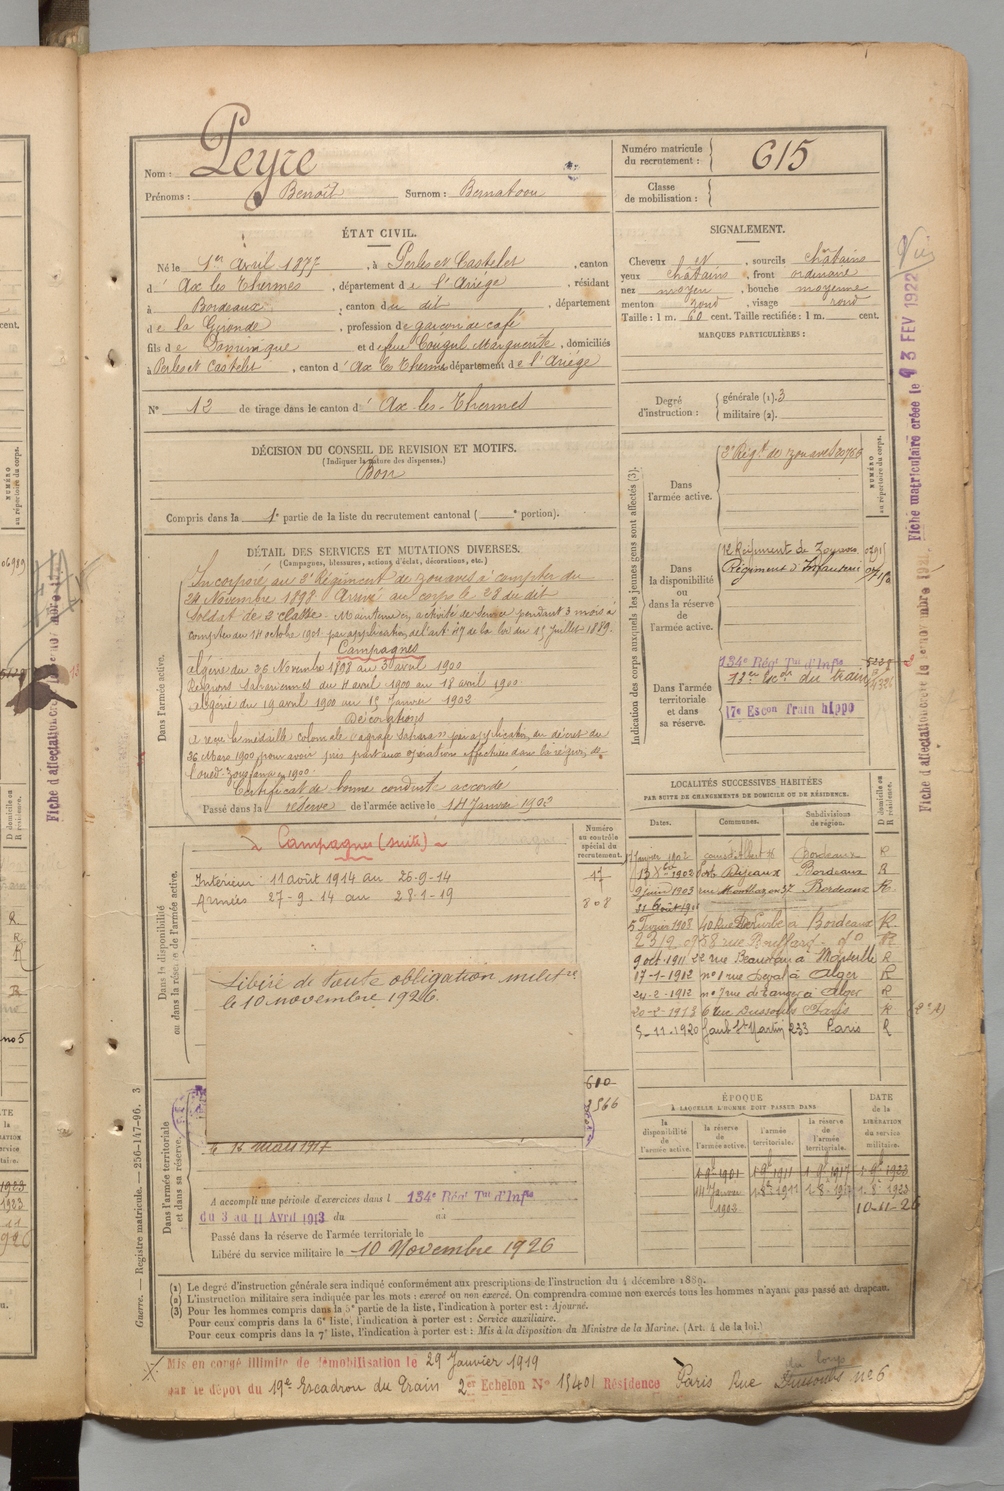 Nom : Peyre
Prénoms : Benoît Surnom : Bernatoou
Numéro matricule du recrutement : 615
Classe de mobilisation :
ÉTAT CIVIL.
Né le 1er Avril 1877, à Perles et Castelet, canton
d' Ax les Thermes, département de l'Ariège, résidant
à Bordeaux, canton du dit, département
de la Gironde, profession de garçon de café
fils de Dominique et de feue Cougul Marguerite, domiciliés
à Perles et Castelet, canton d' Ax les Thermes département de l'Ariège
N° 12 de tirage dans le canton d' Ax-les-Thermes
SIGNALEMENT.
Cheveux et, sourcils châtains
yeux châtains, front ordinaire
nez moyen, bouche moyenne
menton rond, visage rond
Taille : 1 m. 60 cent. Taille rectifiée : 1 m. cent.
MARQUES PARTICULIÈRES :
Degré d'instruction : générale (1). 3
militaire (2).
DÉCISION DU CONSEIL DE REVISION ET MOTIFS.
(Indiquer la nature des dispenses.)
Bon
Compris dans la 1e partie de la liste du recrutement cantonal ( e portion).
DÉTAIL DES SERVICES ET MUTATIONS DIVERSES.
(Campagnes, blessures, actions d'éclat, décorations, etc.)
Dans l'armée active.
Incorporé au 3e Régiment de zouaves à compter du
24 Novembre 1898. Arrivé au corps le 28 du dit
Soldat de 2e classe. Maintenu en activité de service pendant 3 mois à
compter du 14 octobre 1901 par application de l'art. 47 de la loi du 15 Juillet 1889.
Campagnes
Algérie du 26 Novembre 1898 au 3 avril 1900
Régions Sahariennes du 4 avril 1900 au 18 avril 1900
Algérie du 19 avril 1900 au 15 Janvier 1902
Décorations
A reçu la médaille coloniale "agrafe Sahara" par application du décret du
26 Mars 1900 pour avoir pris part aux opérations effectuées dans la région de
l'oued Zousfana en 1900
Certificat de bonne conduite accordé
Passé dans la réserve de l'armée active le 14 Janvier 1902
Indication des corps auxquels les jeunes gens sont affectés (3).
NUMÉRO au répertoire du corps.
Dans l'armée active.
3e Régt de zouaves
Dans la disponibilité ou dans la réserve de l'armée active.
Régiment de Zouaves
Régiment d'Infanterie
Dans l'armée territoriale et dans sa réserve.
134e Régt Tal d'Infie
Escon du train
17e Escon Train hippo
Dans la disponibilité ou dans la réserve de l'armée active.
Campagnes (suite)
Numéro au contrôle spécial du recrutement.
Intérieur 11 août 1914 au 26-9-14
17
Armées 27-9-14 au 28-1-19
808
Libéré de toute obligation militre
le 10 novembre 1926.
610
LOCALITÉS SUCCESSIVES HABITÉES
PAR SUITE DE CHANGEMENTS DE DOMICILE OU DE RÉSIDENCE.
Dates. Communes. Subdivisions de région. D domicile ou R résidence.
Janvier 1902 cours d'Albret Bordeaux R
1902 Bordeaux R
9 juin 1903 rue Bordeaux R
31 Août
5 Février 1908 40 Rue à Bordeaux R
8 rue do R
9 oct. 1911 22 rue Beauvau à Marseille R
17-1-1912 n° 1 rue à Alger R
24-2-1912 n° 7 rue de Tanger à Alger R
20-2-1913 6 rue Paris R
5-11-1920 Faub St Martin 233 Paris R
ÉPOQUE
À LAQUELLE L'HOMME DOIT PASSER DANS
la disponibilité de l'armée active. la réserve de l'armée active. l'armée territoriale. la réserve de l'armée territoriale. DATE de la LIBÉRATION du service militaire.
14 Janvier 1902
10-11-26
Dans l'armée territoriale et dans sa réserve.
A accompli une période d'exercices dans l 134e Régt Tal d'Infie
du 3 au 11 Avril 1913 du au
Passé dans la réserve de l'armée territoriale le
Libéré du service militaire le 10 Novembre 1926
(1) Le degré d'instruction générale sera indiqué conformément aux prescriptions de l'instruction du 4 décembre 1889.
(2) L'instruction militaire sera indiquée par les mots : exercé ou non exercé. On comprendra comme non exercés tous les hommes n'ayant pas passé au drapeau.
(3) Pour les hommes compris dans la 5e partie de la liste, l'indication à porter est : Ajourné.
Pour ceux compris dans la 6e liste, l'indication à porter est : Service auxiliaire.
Pour ceux compris dans la 7e liste, l'indication à porter est : Mis à la disposition du Ministre de la Marine. (Art. 4 de la loi.)
Mis en congé illimité de démobilisation le 29 Janvier 1919
par le dépôt du 19e Escadron du Train 2e Echelon N° 15401 Résidence Paris Rue n° 6
Guerre. — Registre matricule. — 256-147-96. 3
Fiche matriculaire créée le 3 FEV 1922